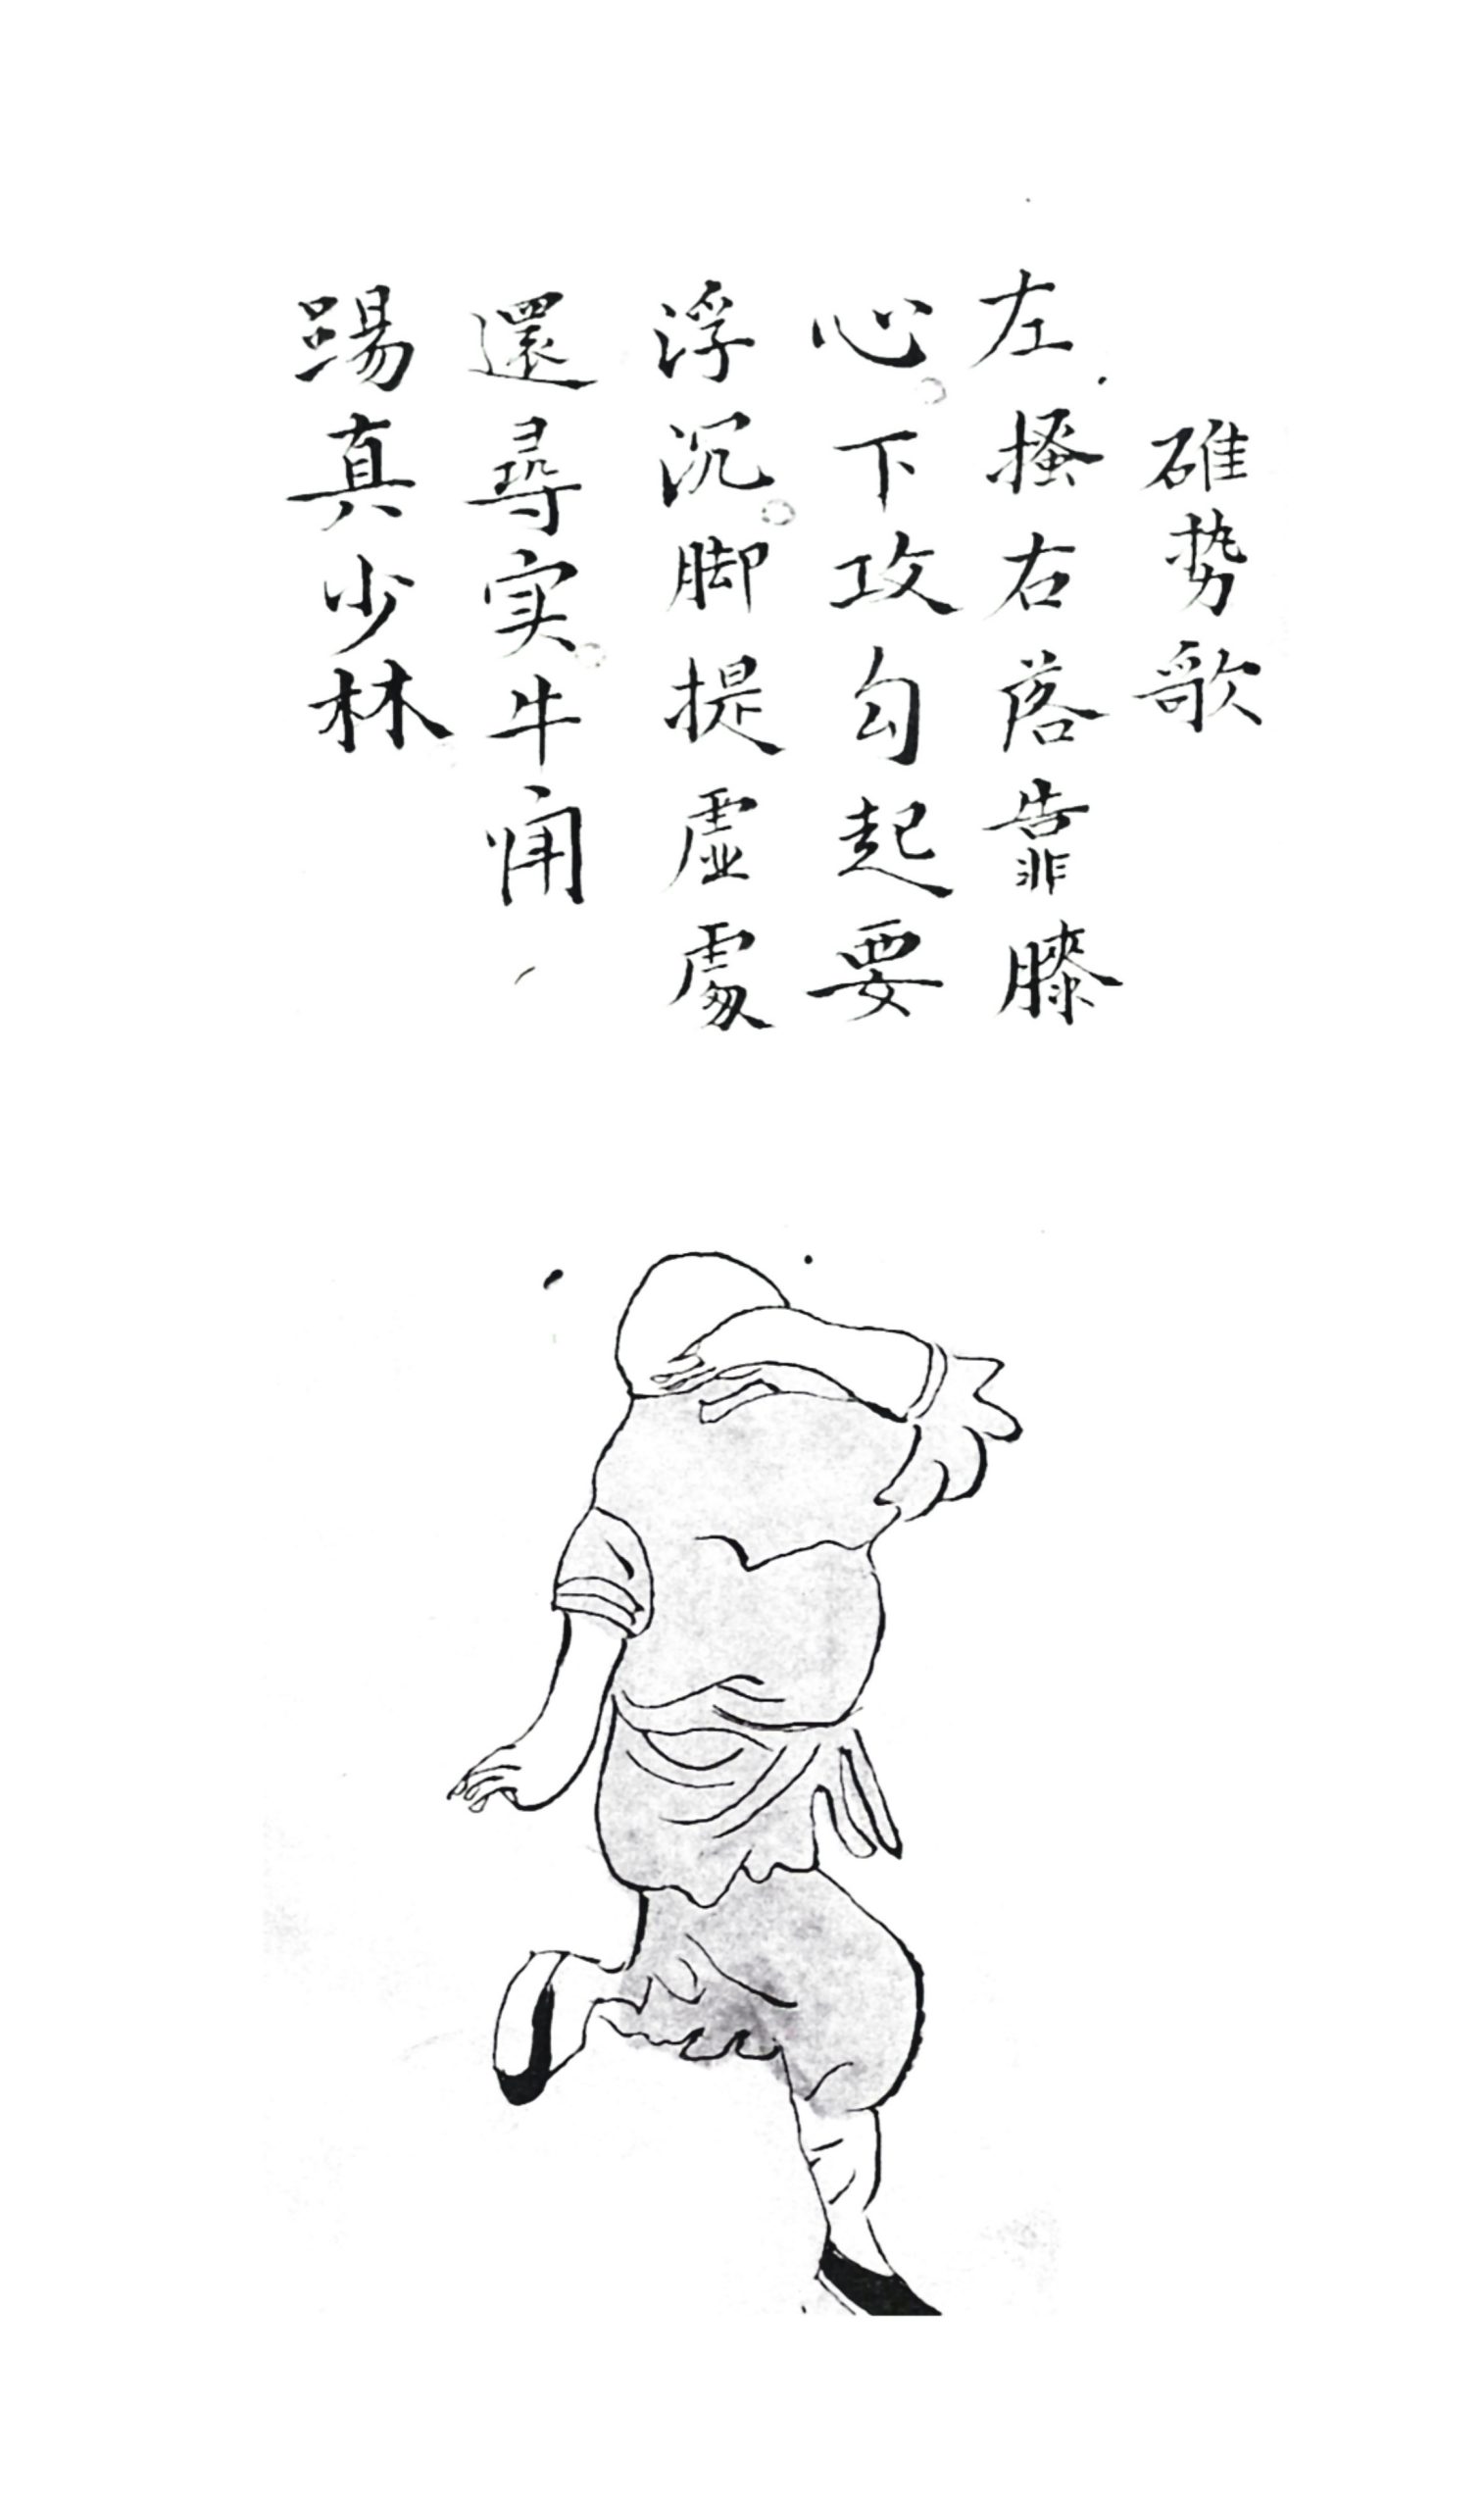 碓势歌
左搔右落靠膝
心。下攻勾起要
浮沉。脚提虚處
還尋实。牛
踢真少林